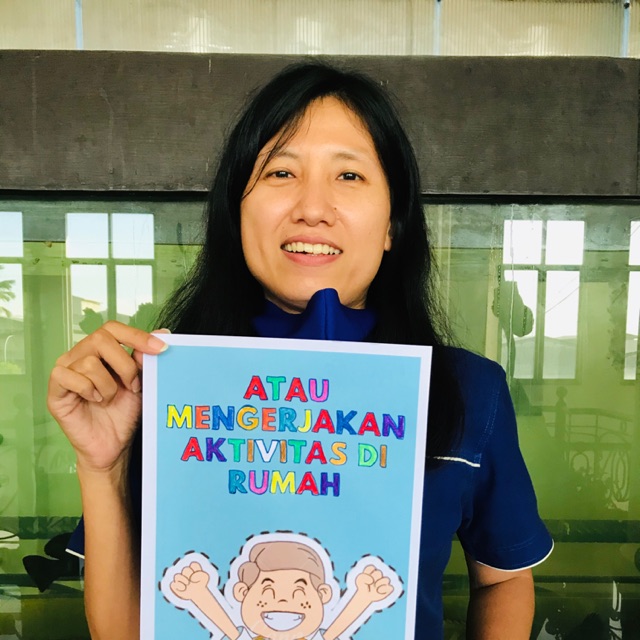 ATAU
MENGERJAKAN
AKTIVITAS DI
RUMAH